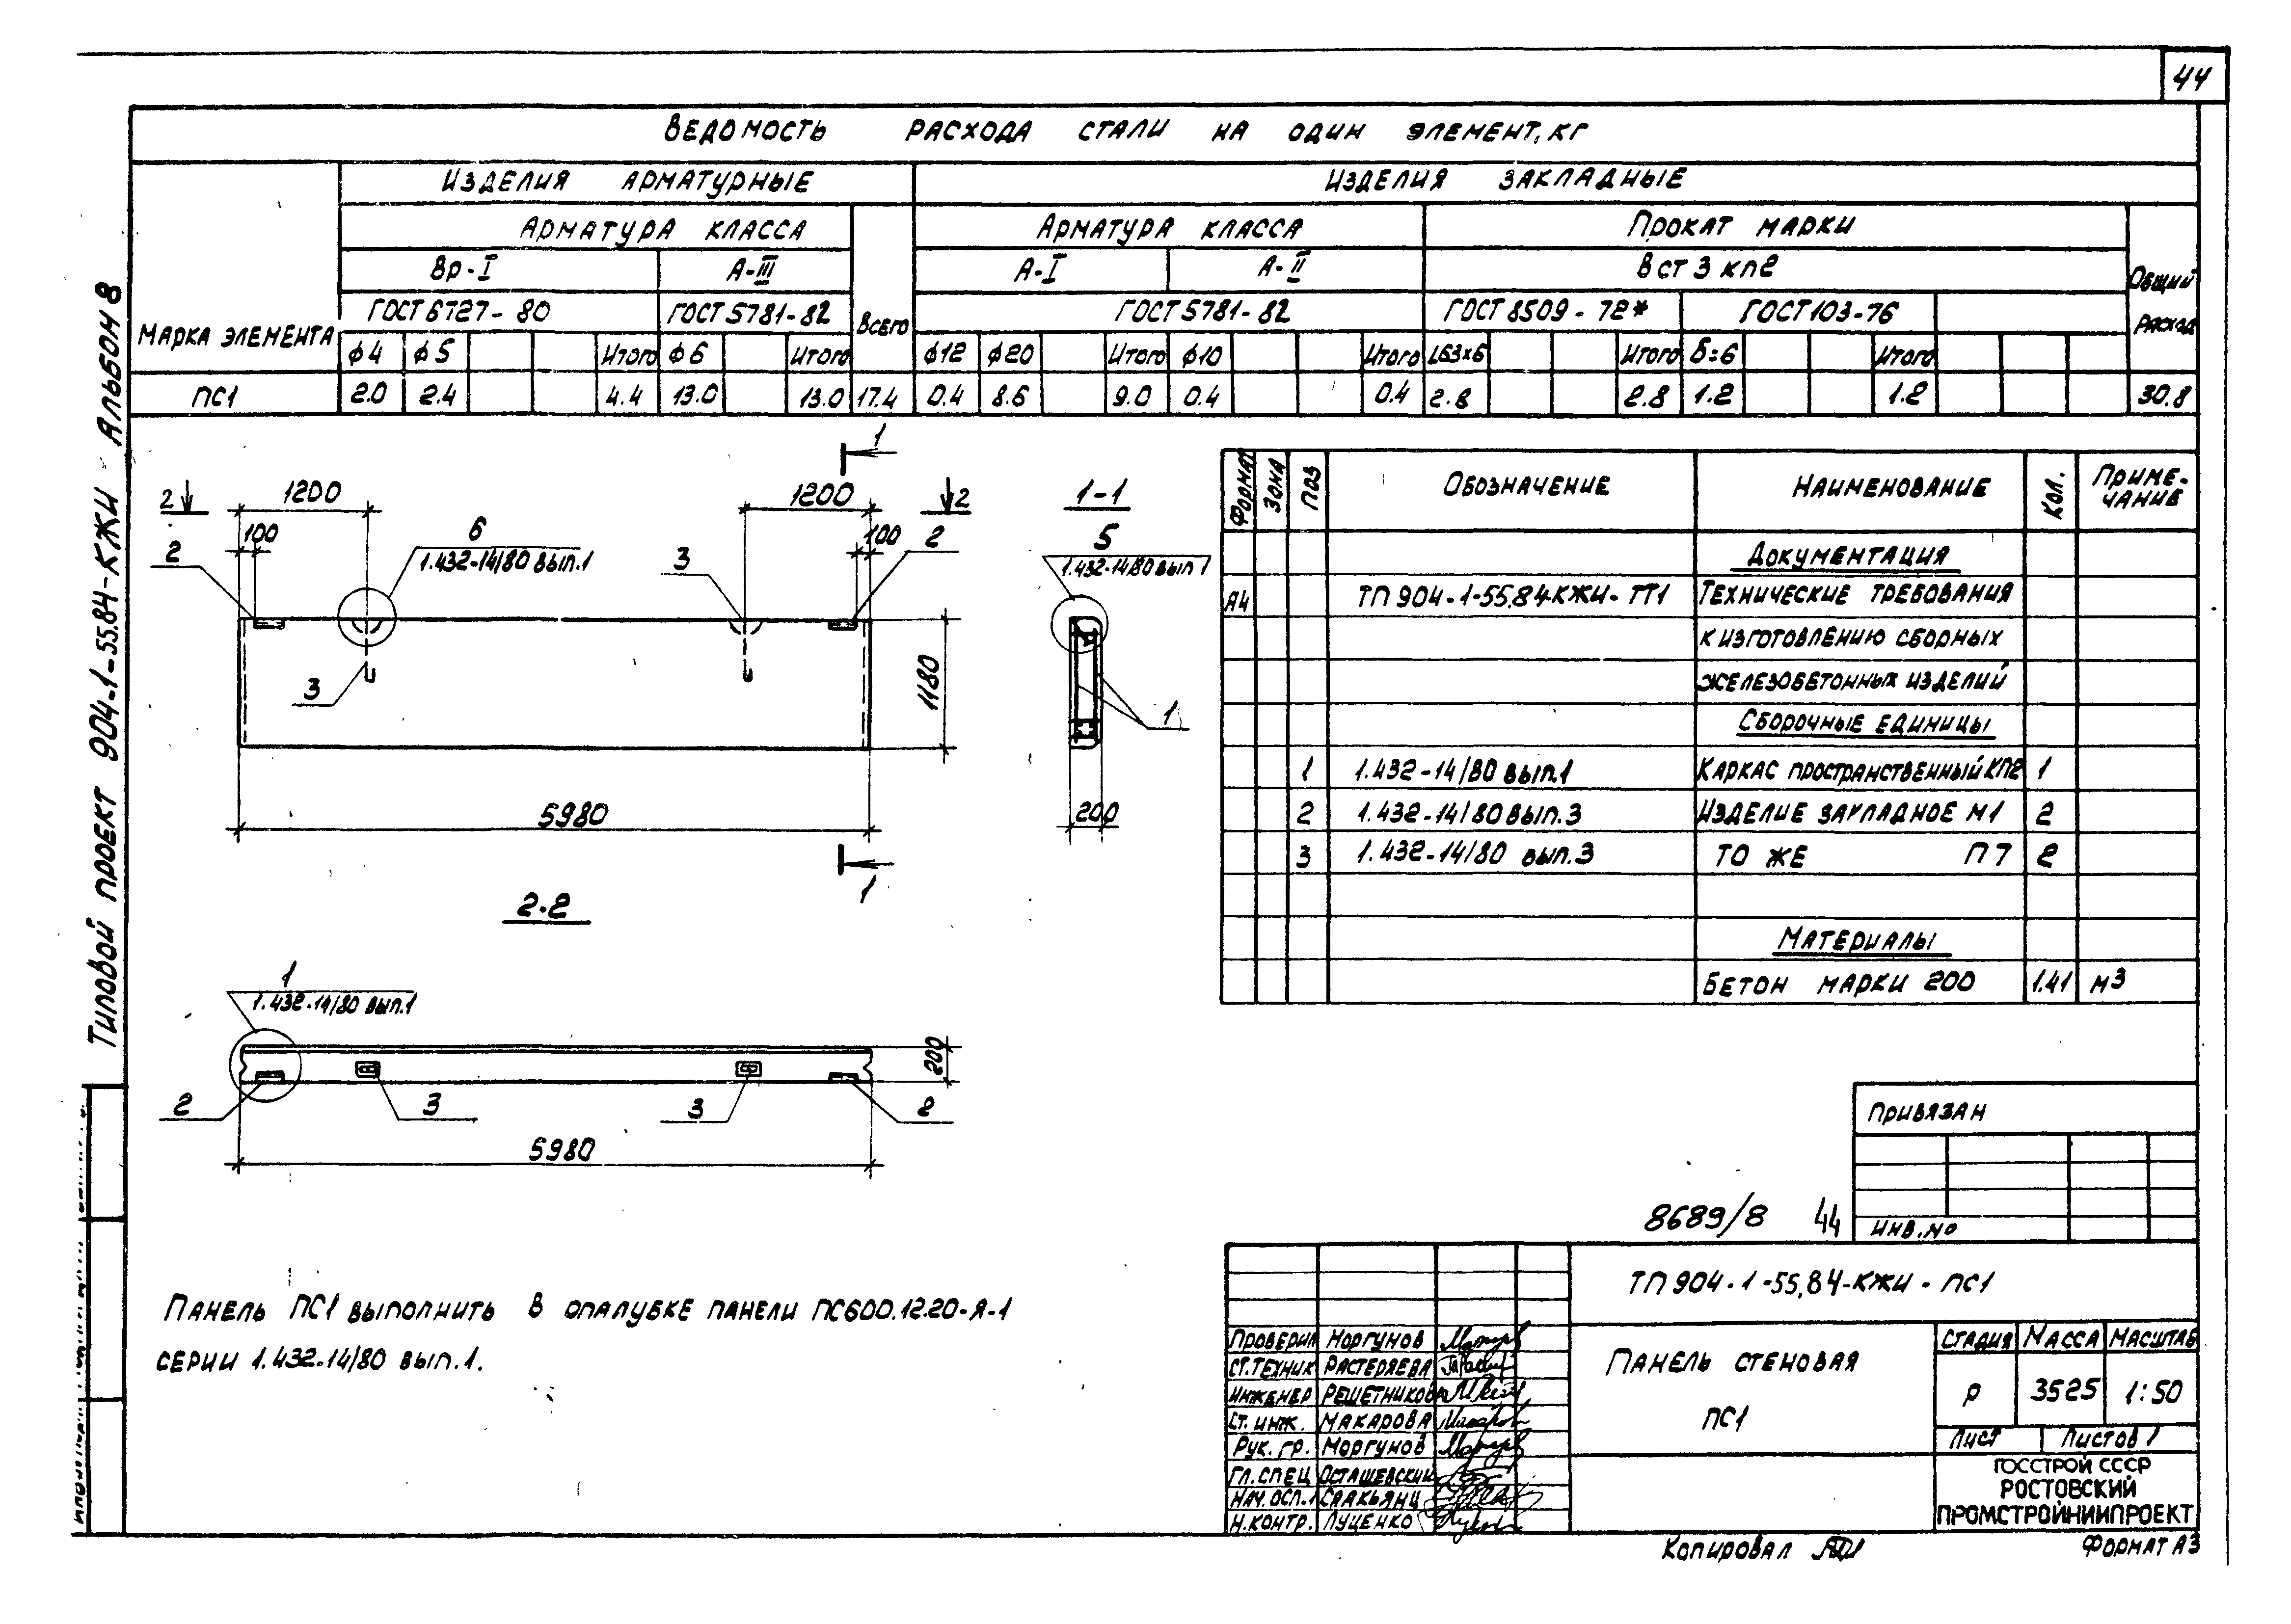 44
Ведомость расхода стали на один элемент, кг
Марка элемента
Изделия арматурные
Изделия закладные
Арматура класса
Всего
Арматура класса
Прокат марки
Общий расход
Вр-I
А-III
А-I
А-II
Вст3кп2
ГОСТ 6727-80
ГОСТ 5781-82
ГОСТ 5781-82
ГОСТ 8509-72*
ГОСТ 103-76
ф4 ф5 Итого ф6 Итого ф12 ф20 Итого ф10 Итого L63х6 Итого δ=6 Итого
ПС1 2.0 2.4 4.4 13.0 13.0 17.4 0.4 8.6 9.0 0.4 0.4 2.8 2.8 1.2 1.2 30.8
Типовой проект 904-1-55.84-КЖИ Альбом 8
1
2
1200
1200
2
100
100
2
6
1.432-14/80 вып.1
3
2
3
1180
5980
1
1-1
5
1.432-14/80 вып 1
1
200
2-2
1
1.432-14/80 вып.1
200
2
3
3
2
5980
Формат Зона Поз Обозначение Наименование Кол. Приме-
чание
Документация
А4 ТП 904-1-55.84-КЖИ-ТТ1 Технические требования
к изготовлению сборных
железобетонных изделий
Сборочные единицы
1 1.432-14/80 вып.1 Каркас пространственный КП2 1
2 1.432-14/80 вып.3 Изделие закладное М1 2
3 1.432-14/80 вып.3 То же П7 2
Материалы
Бетон марки 200 1.41 м3
Панель ПС1 выполнить в опалубке панели ПС600.12.20-Я-1
серии 1.432-14/80 вып.1.
Привязан
Инв.№
8689/8 44
ТП 904-1-55.84-КЖИ-ПС1
Проверил Моргунов
Ст.техник Растеряева
Инженер Решетникова
Ст. инж. Макарова
Рук. гр. Моргунов
Гл. спец Осташевский
Саакьянц
Н.контр. Луценко
Панель стеновая
ПС1
Стадия Масса Масштаб
Р 3525 1:50
Лист Листов 1
ГОССТРОЙ СССР
РОСТОВСКИЙ
ПРОМСТРОЙНИИПРОЕКТ
Копировал
Формат А3